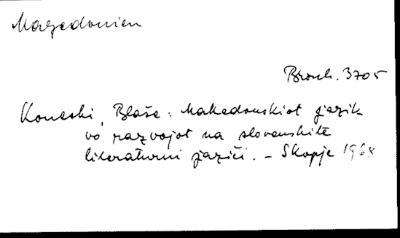 Mazedonien
Brosch. 3705
Koneski, Blaže: Makedonskiot jazik
vo razvojot na slovenskite
literaturni jazici. – Skopje 1968